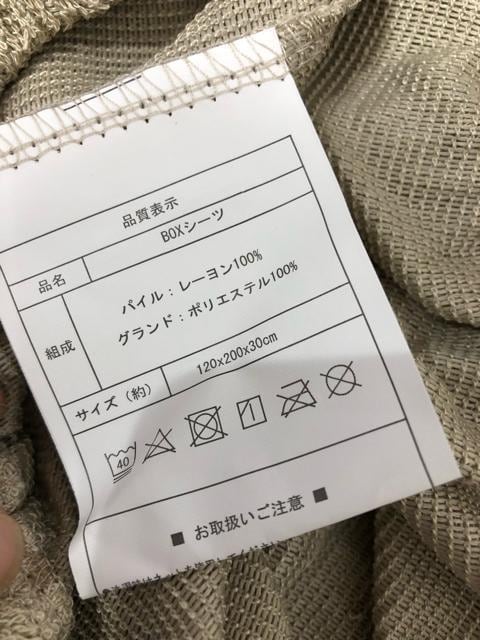 品質表示
品名 BOXシーツ
組成 パイル：レーヨン100%
グランド：ポリエステル100%
サイズ（約） 120x200x30cm
40
■ お取扱いご注意 ■